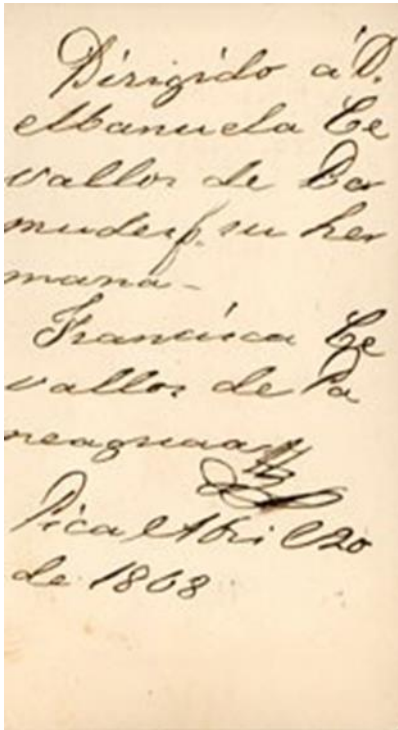 Dirigido á D.
Manuela Ce
vallos de Ber
mudes p. su her
mana-
Francisca Ce
vallos de Pa
Pica Abril 20
de 1868